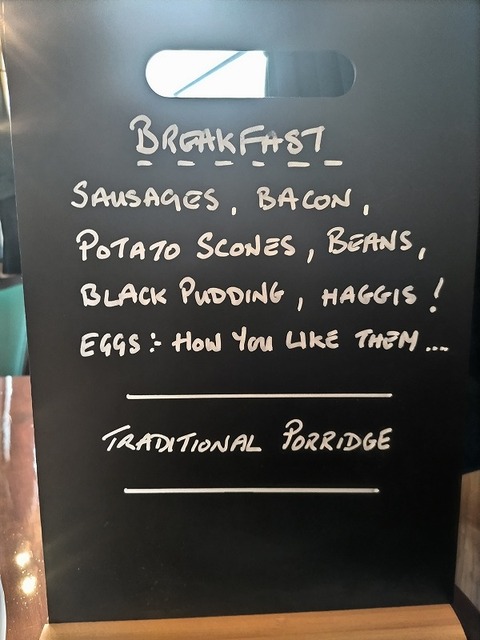 BREAKFAST
SAUSAGES, BACON,
POTATO SCONES, BEANS,
BLACK PUDDING, HAGGIS!
EGGS:- HOW YOU LIKE THEM...
TRADITIONAL PORRIDGE